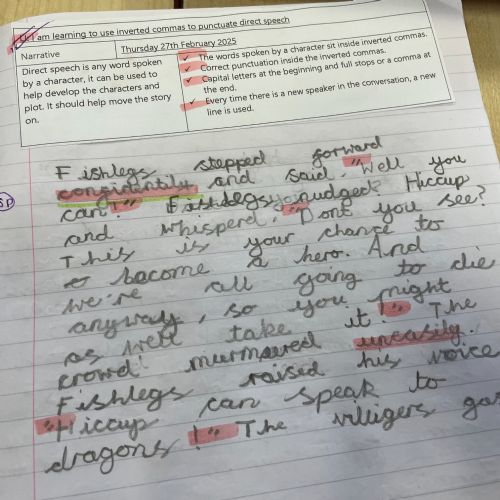 LO: I am learning to use inverted commas to punctuate direct speech
Narrative
Thursday 27th February 2025
Direct speech is any word spoken
by a character, it can be used to
help develop the characters and
plot. It should help move the story
on.
✓ The words spoken by a character sit inside inverted commas.
✓ Correct punctuation inside the inverted commas.
✓ Capital letters at the beginning and full stops or a comma at
the end.
✓ Every time there is a new speaker in the conversation, a new
line is used.
Fishlegs stepped forward
and said "Well you
can!" Fishlegs nudged Hiccup
and whisperd, "Dont you see?
This is your chance to
become a hero. And
we're all going to die
anyway, so you might
as well take it!" The
crowd murmaured uneasily.
Fishlegs raised his voice
"Hiccup can speak to
dragons!" The villigers
sp